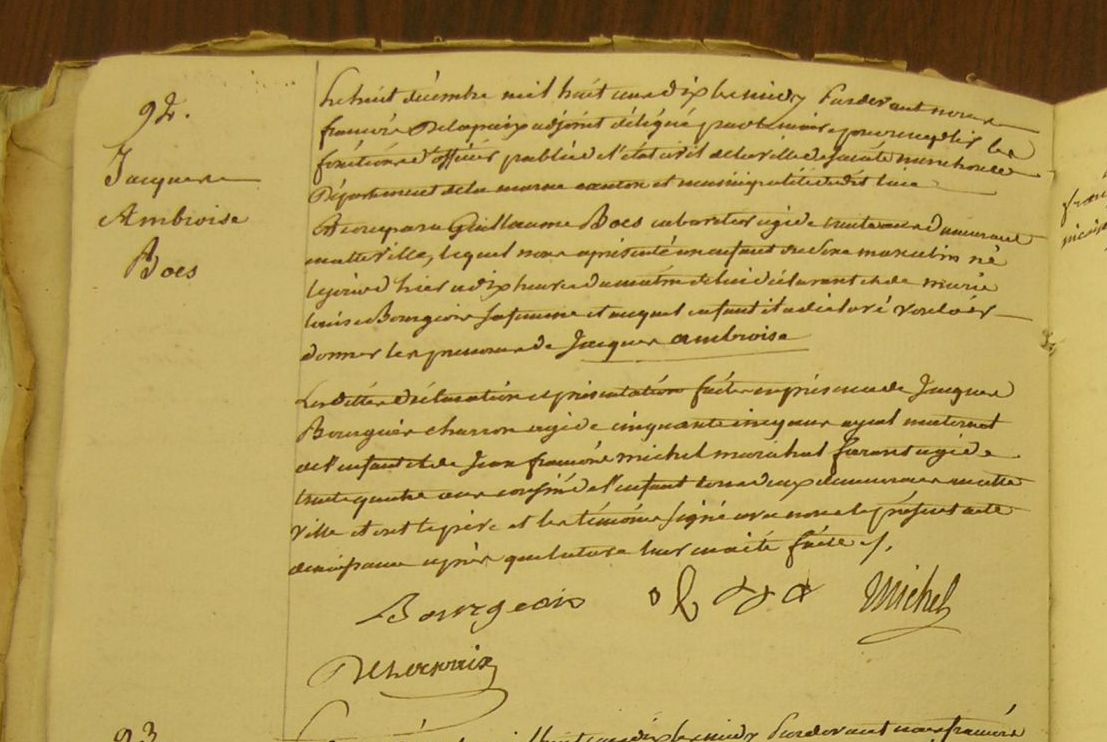 92.
Jacques
Ambroise
Boes
Le huit décembre mil huit cent dix le midy Pardevant nous
françois Delapaix adjoint délégué par le maire pour remplir les
fonctions d'officier public de l'état civil de la ville de sainte menehould
Département de la marne canton et municipalité dudit lieu
Est comparu Guillaume Boes cabaretier agé de trente ans demeurant
en cette ville, lequel nous a présenté un enfant du sexe masculin né
le jour d'hier a dix heures du matin de lui déclarant et de marie
louise Bourgeois sa femme et auquel enfant il a déclaré vouloir
donner les prenoms de Jacques ambroise
Lesdittes déclaration et présentation faites en présence de Jacques
Bourgeois charron agé de cinquante cinq ans ayeul maternel
de l'enfant et de Jean françois michel marechal ferant agé de
trente quatre ans cousin de l'enfant tous deux demeurans en cette
ville et ont le père et les témoins signé avec nous le présent acte
de naissance après que lecture leur en a été faite
Bourgeois
Michel
Delapaix
93
françois